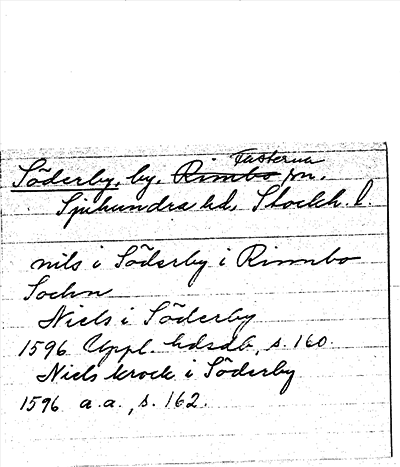 Söderby, by, Rimbo Fasterna sn.
Sjuhundra hd, Stockh. l.
nils i Söderby i Rimbo
Sochn
Niels i Söderby
1596 Uppl. hdsdb, s. 160.
Niels krock i Söderby
1596 a.a., s. 162.